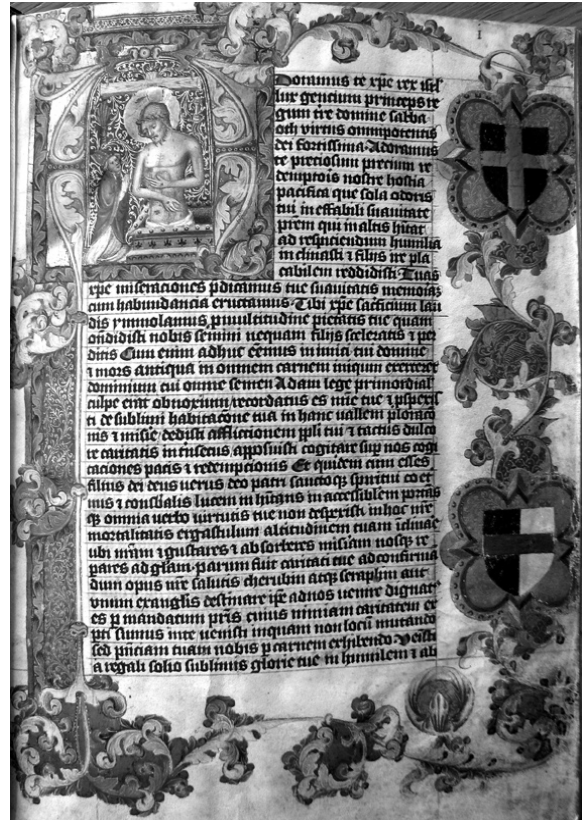 Dominus te xpe rex isrl
lux gencium princeps re
gum tre domine saba
oth virtus omnipotentis
dei fortissima. Adoramus
te preciosum precium re
demptois nostre hostia
pacifica que sola odoris
tui in effabili suauitate
prem qui in altis hitat
ad respiciendum humilia
inclinasti & filiis ire pla
cabilem reddidisti. Tuas
xpe miseraciones pdicamus tue suauitatis memoriā
cum habundancia eructamus. Tibi xpe sacficium lau
dis ymmolamus, p multitudine pietatis tue quam
ondidisti nobis semini nequam filijs sceleratis & per
ditis Cum enim adhuc eēmus inimici tui domine
& mors antiqua in omnem carnem iniqum exerceret
dominium cui omne semen Adam lege primordial
culpe erat obnoxium, recordatus es mie tue & pspexis
ti de sublimi habitacōne tua in hanc vallem ploracō
nis & misie, dedisti afflictionem ppli tui & tactus dulco
re caritatis intrisecus, apposuisti cogitare sup nos cogi
taciones pacis & redempcionis Et quidem cum esses
filius dei deus uerus deo patri sanctoqz spiritui coet
nus & conslialis lucem inhitans in accessiblem portās
qz omnia uerbo uirtutis tue non despexisti in hoc nre
mortalitatis ergastulum altitudinem tuam iclinare
ubi nram & gustares & absorberes misiam nosqz re
pares ad glam. parum fuit caritati tue ad confirma
dum opus nre salutis cherubim atqz seraphim aut
vnum ex anglis destinare ipe ad nos uenire dignat
es p mandatum pris cuius nimiam caritatem ex
pti sumus in te uenisti inquam non locū mutando
sed pnciam tuam nobis p carnem exhibendo. Veisti
a regali solio sublimis glorie tue in humilem & ab